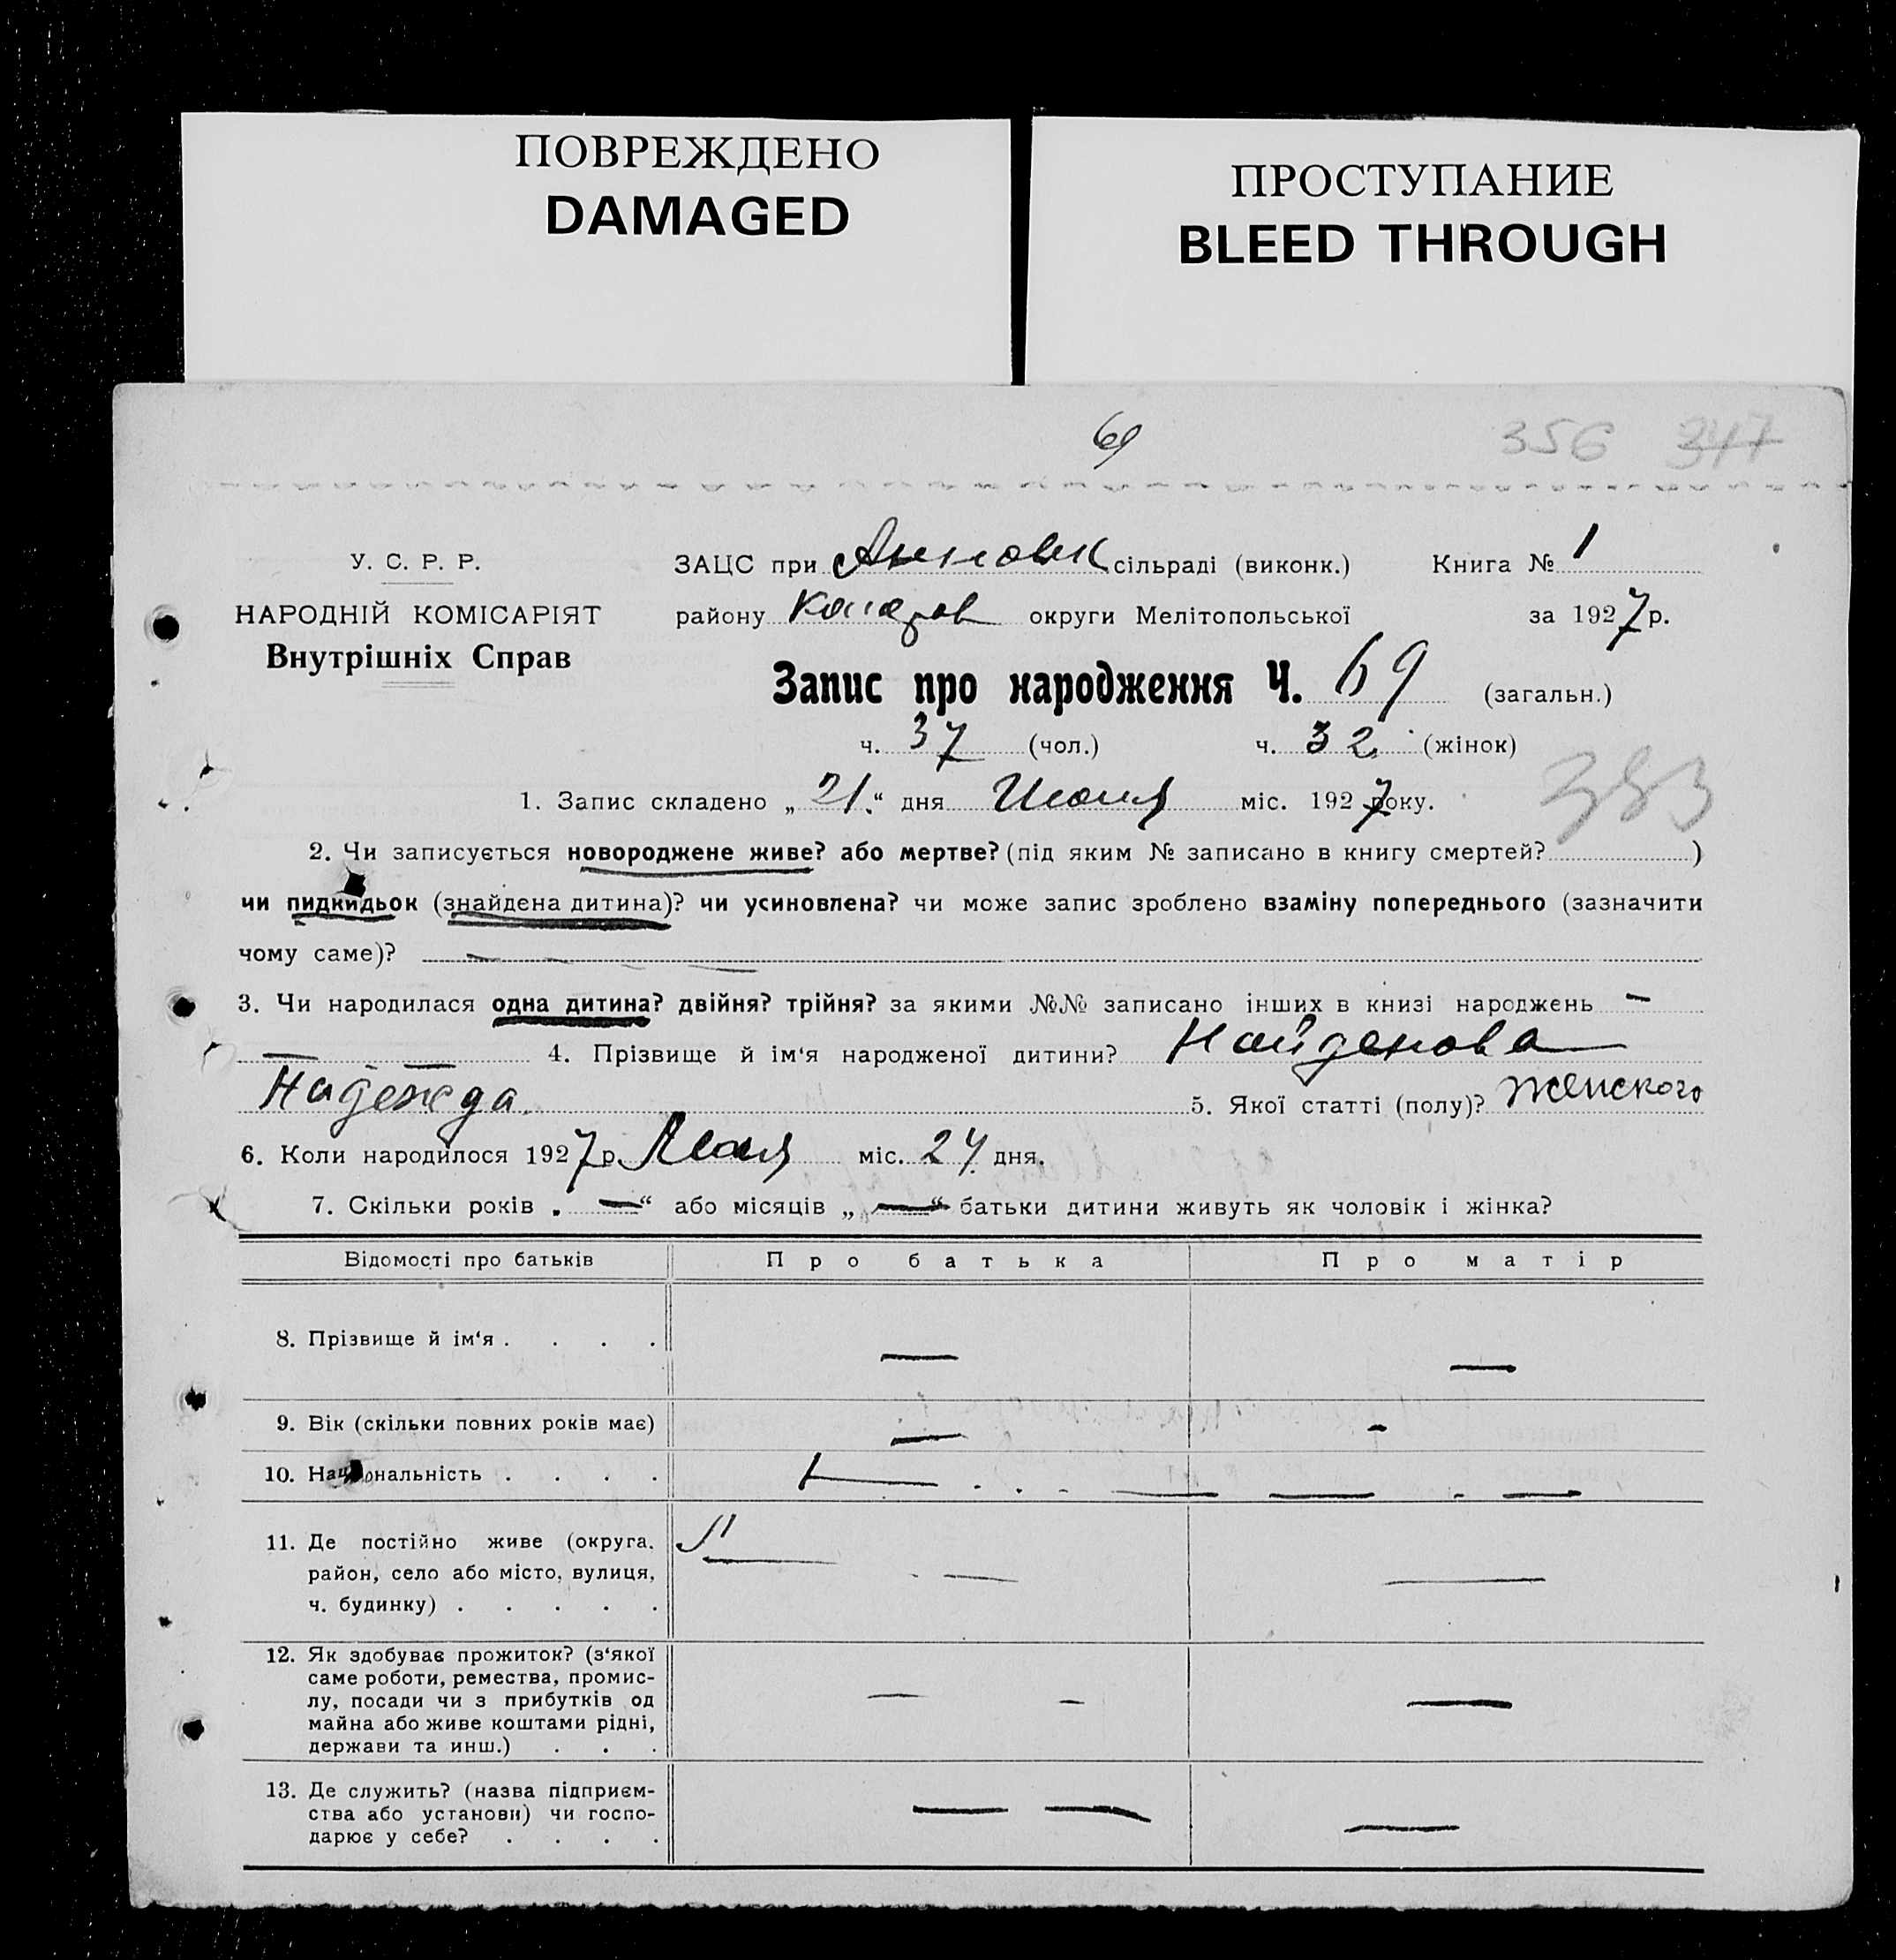 ПОВРЕЖДЕНО
DAMAGED
ПРОСТУПАНИЕ
BLEED THROUGH
69
356 347
У. С. Р. Р.
НАРОДНІЙ КОМІСАРІЯТ
Внутрішніх Справ
ЗАЦС при Анновск сільраді (виконк.) Книга № 1
району округи Мелітопольської за 1927 р.
Запис про народження Ч. 69 (загальн.)
ч. 37 (чол.) ч. 32 (жінок)
383
1. Запис складено „21“ дня Июля міс. 1927 року.
2. Чи записується новороджене живе? або мертве? (під яким № записано в книгу смертей? )
чи пидкидьок (знайдена дитина)? чи усиновлена? чи може запис зроблено взаміну попереднього (зазначити
чому саме)? —
3. Чи народилася одна дитина? двійня? трійня? за якими №№ записано інших в книзі народжень —
— 4. Прізвище й ім‘я народженої дитини? Найденова
Надежда. 5. Якої статті (полу)? Женского
6. Коли народилося 1927 р. міс. 24 дня.
7. Скільки років „—“ або місяців „—“ батьки дитини живуть як чоловік і жінка?
Відомості про батьків Про батька Про матір
8. Прізвище й ім‘я . . . . — —
9. Вік (скільки повних років має) — -
10. Національність . . . . — — — —
11. Де постійно живе (округа,
район, село або місто, вулиця, — —
ч. будинку) . . . . .
12. Як здобуває прожиток? (з‘якої
саме роботи, ремества, промис-
лу, посади чи з прибутків од — — —
майна або живе коштами рідні,
держави та инш.) . . .
13. Де служить? (назва підприєм-
ства або установи) чи госпо- — — —
дарює у себе? . . . .